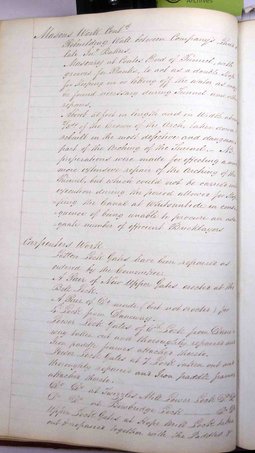 Archives
Masons Work Cont.d
Rebuilding Wall between Company's Land &
late Jn.o Bakers
Masonry at Coates End of Tunnel with
grooves for Planks, to act as a double Stop
for keeping in or letting off the water as may
be found necessary during Tunnel or other
repairs.
feet in length and in Width about
of the Crown of the Arch, taken down &
rebuilt in the most defective and dangerous
part of the Arching of the Tunnel.
preparations were made for effecting a much
more extensive repair of the Arching of the
Tunnel, but which could not be carried into
execution during the period allowed for Stop
ping the Canal at Whitsuntide in conse
quence of being unable to procure an ade
quate number of efficient Bricklayers
Carpenters Work
Lock Gates have been repaired as
ordered by the Committee.
A Pair of New Upper Gates erected at the
Lock.
A Pair of D.o made (but not erected) for
Lock from
Lower Lock Gates of 6th Lock from
way taken out and thoroughly repaired and
Iron paddle frames attached thereto.
Lock Gates at 7 Lock taken out and
thoroughly repaired and Iron paddle frames
attached thereto.
D.o D.o at Lower Lock D.o D.o
D.o D.o at Lock D.o D.o
Upper Lock Gates at Hope Mill Lock taken
out & repaired together with the